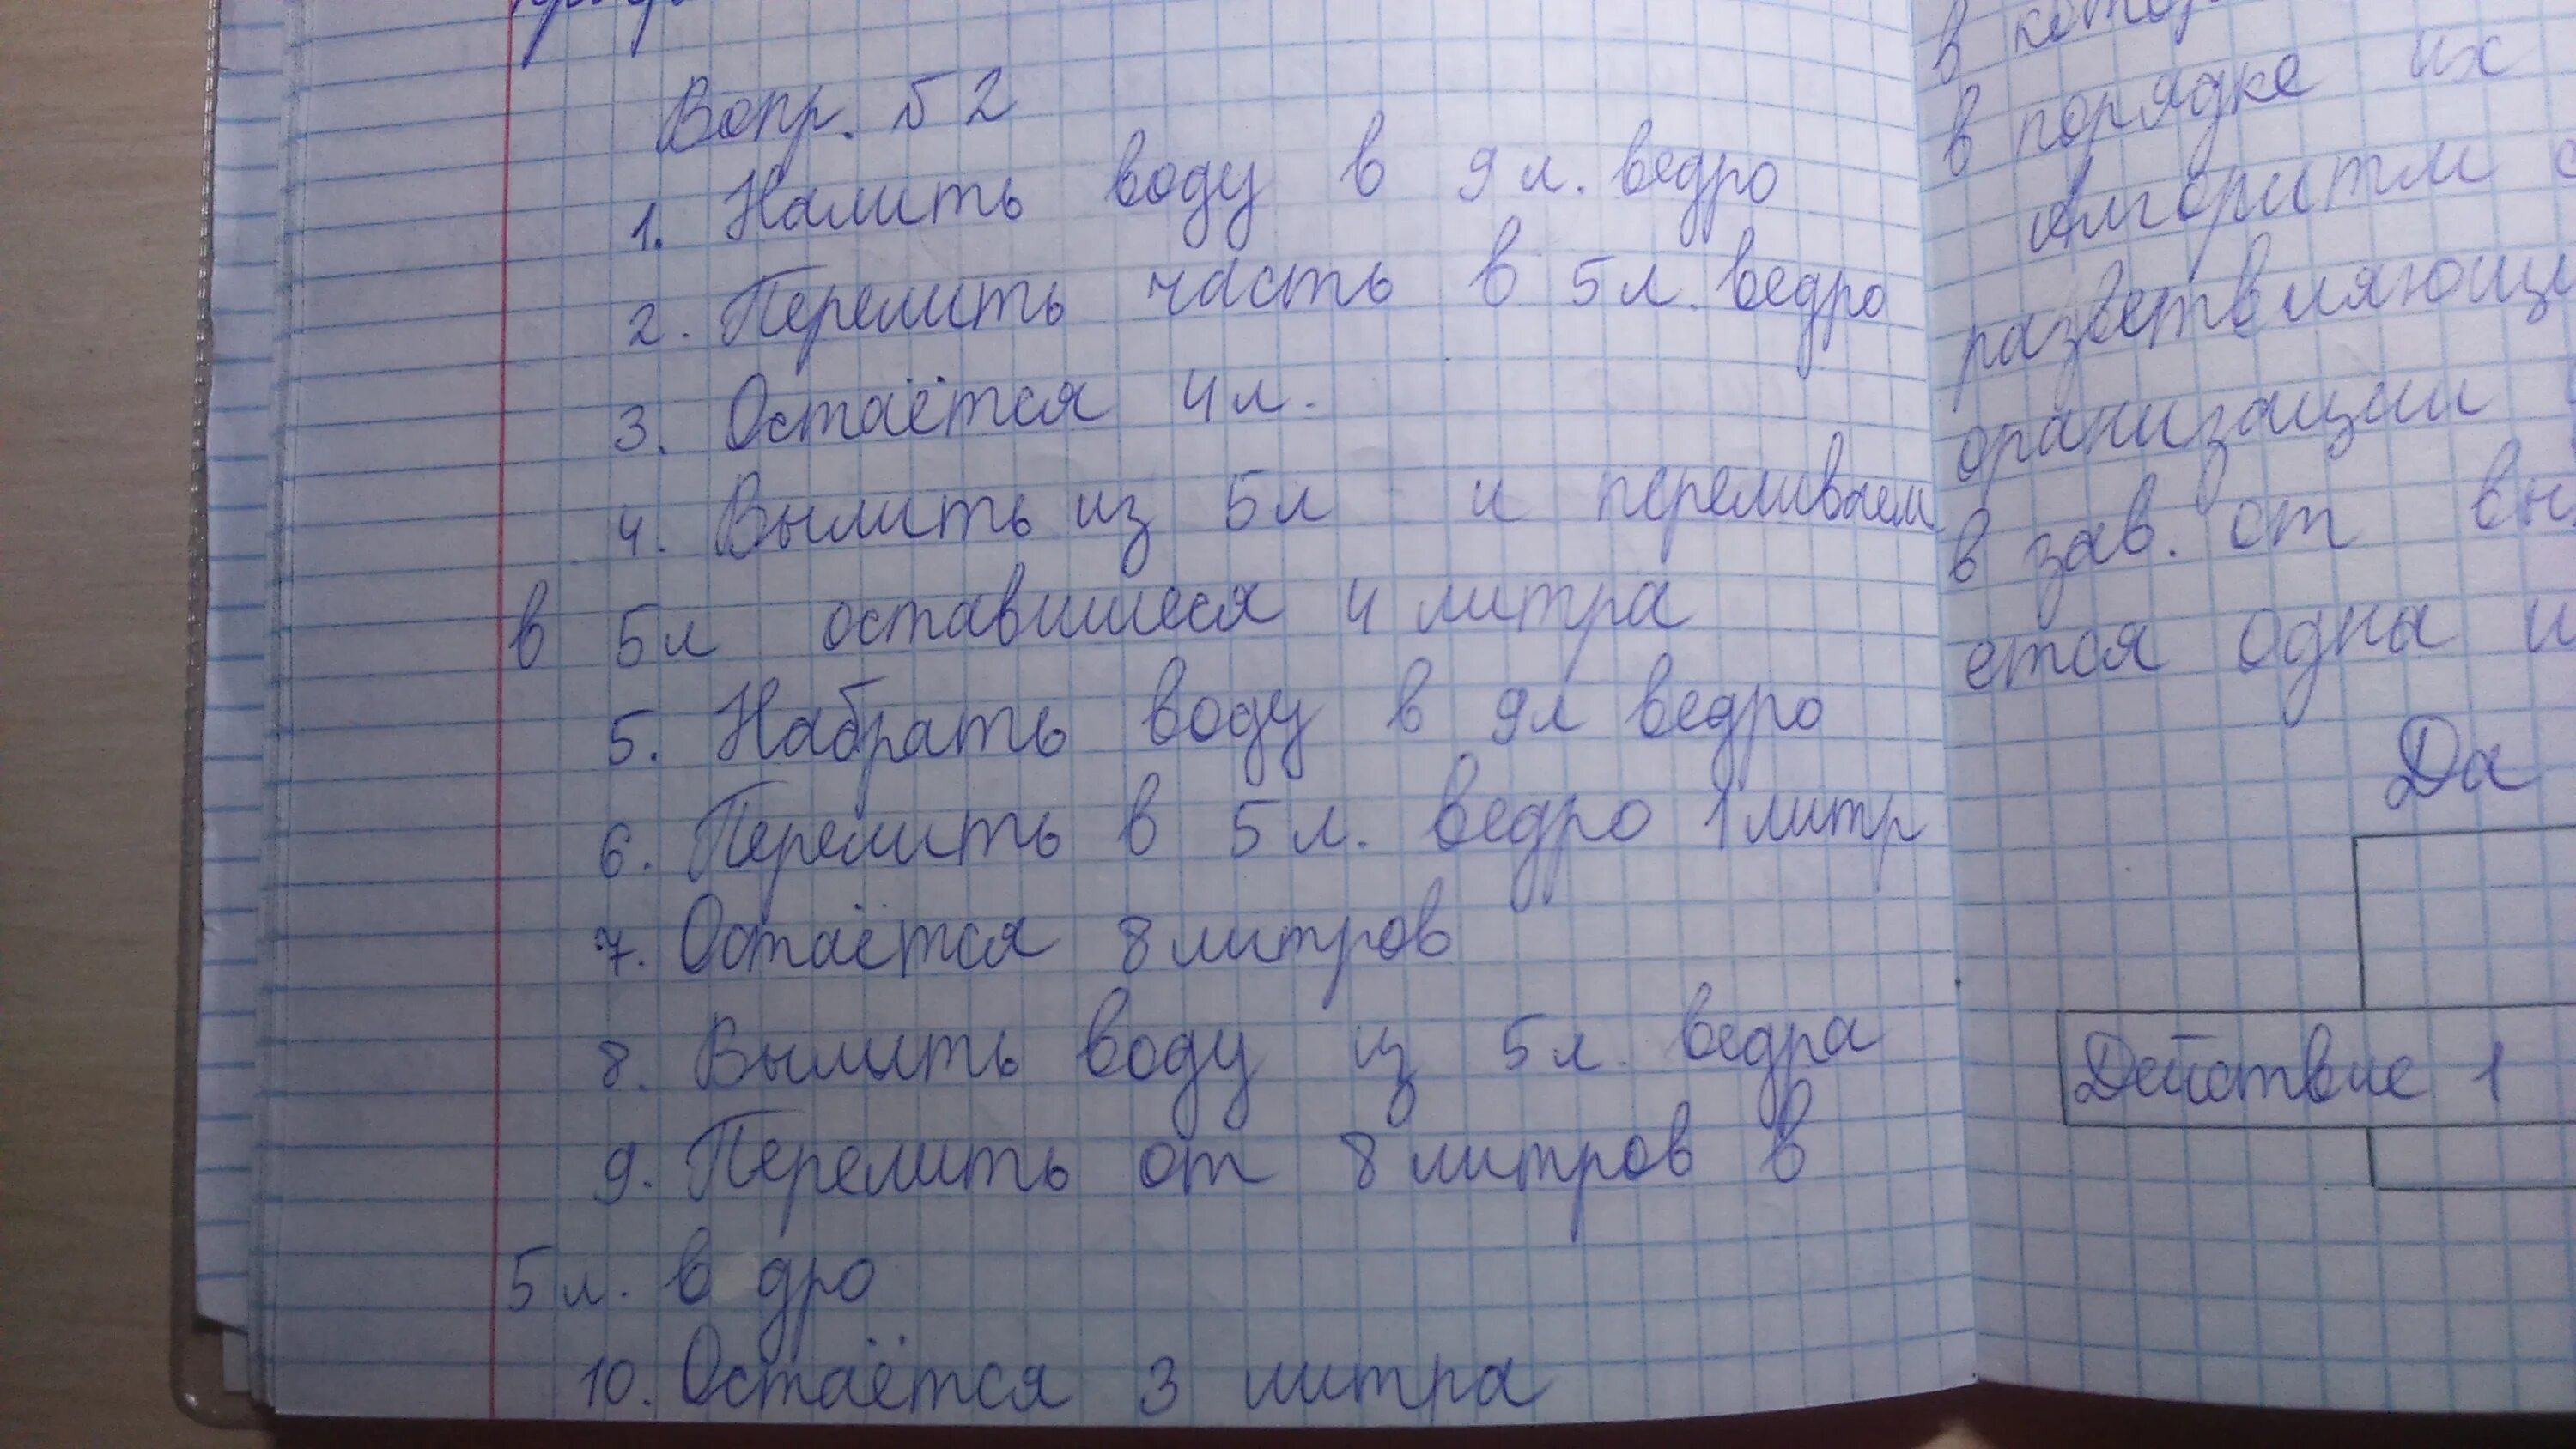 Вопр. Б 2
1. Налить воду в 9 л. ведро
2. Перелить часть в 5 л. ведро
3. Остаётся 4 л.
4. Вылить из 5 л и переливаем
в 5 л оставшиеся 4 литра
5. Набрать воду в 9 л ведро
6. Перелить в 5 л. ведро 1 литр
7. Остаётся 8 литров
8. Вылить воду из 5 л. ведра
9. Перелить от 8 литров в
5 л. в дро
10. Остаётся 3 литра
в
в порядке их
Алгоритм
разветвляющи
оранизации
в зав. от вы
ется одна и
Да
Действие 1